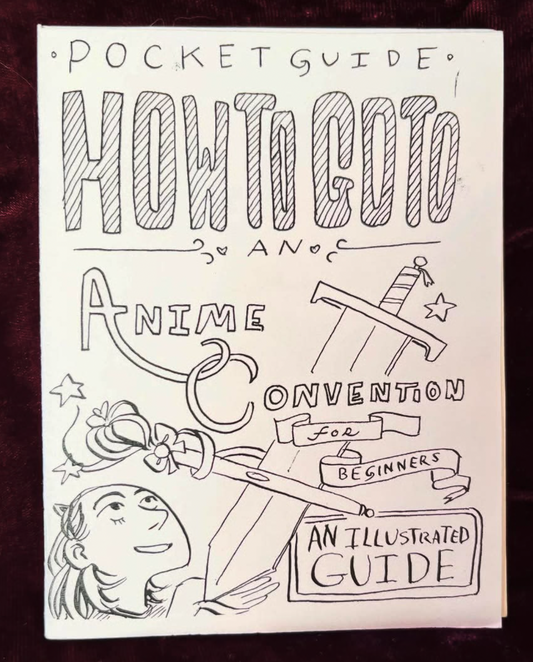 POCKET GUIDE
HOW TO GO TO
AN
ANIME
CONVENTION
for
BEGINNERS
AN ILLUSTRATED
GUIDE